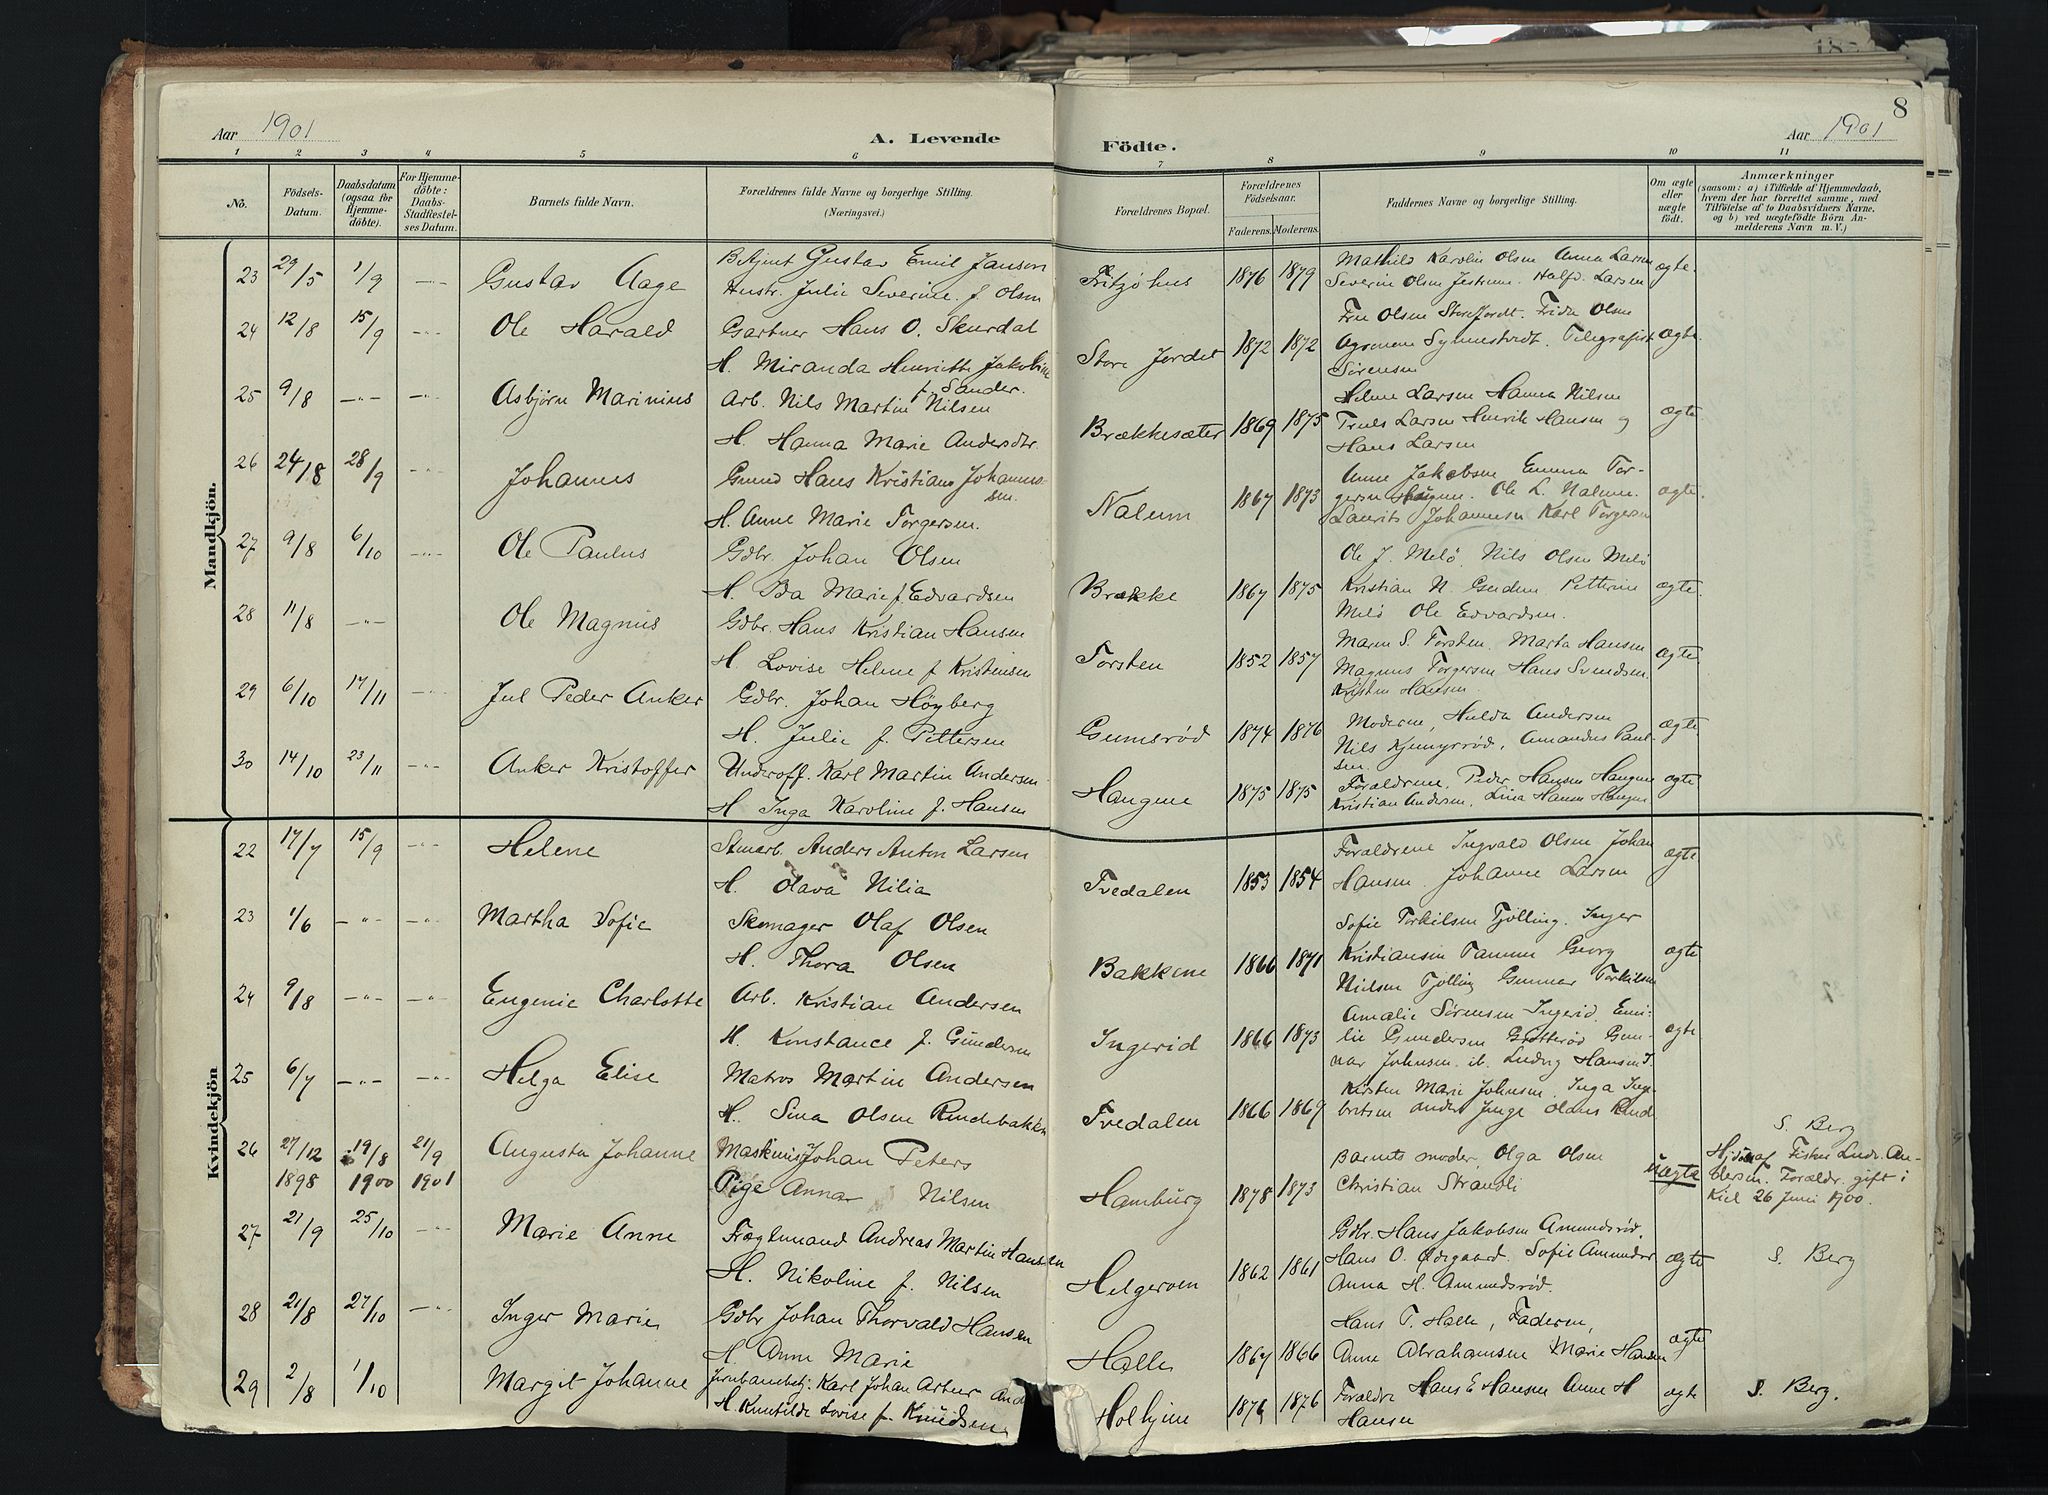 8
Aar 1901
A. Levende
Födte.
Aar 1901
1 2 3 4 5 6 7 8 9 10 11
No.
Födsels-Datum.
Daabsdatum (ogsaa for Hjemmedöbte).
For Hjemmedöbte: Daabs-Stadfestelses Datum.
Barnets fulde Navn.
Forældrenes fulde Navne og borgerlige Stilling. (Næringsvei.)
Forældrenes Bopæl.
Forældrenes Födselsaar.
Faderens. Moderens.
Faddernes Navne og borgerlige Stilling.
Om ægte eller uægte födt.
Anmærkninger
(saasom: a) i Tilfælde af Hjemmedaab, hvem der har forrettet samme, med Tilföielse af to Daabsvidners Navne, og b) ved uægtefödte Börn Anmelderens Navn m. V.)
Mandkjön.
23 29/5 1/9 -"- Gustav Aage Betjent Gustav Emil Jansen
Hustr. Julie Severine f. Olsen
Fritzöhus 1876 1879 Mathild Karolin Olsen Anna Larsen
Severin Olsen Halfd. Larsen ægte
24 12/8 15/9 -"- Ole Harald Gartner Hans O. Skurdal
H. Miranda Henriette Jakobine f. Sander.
Store Jordet 1872 1872 Fru Olsen Store Jordt. Frida Olsen
Agronom Telegrafist
Sörensen ægte
25 9/8 -"- -"- Asbjörn Marinius Arb. Nils Martin Nilsen
H. Hanna Marie Andersdtr.
Brækkesæter 1869 1875 Helene Larsen Hanna Nilsen
Truls Larsen Henrik Hansen og
Hans Larsen ægte
26 24/8 28/9 -"- Johannes Hans Kristian Johannessen.
H. Anne Marie Torgersen.
Nalum 1867 1873 Anne Jakobsen Emma Torgersen Ole L. Nalum.
Laurits Johannesen Karl Torgersen ægte.
27 9/8 6/10 -"- Ole Paulus Gdbr. Johan Olsen
H. Ida Marie f. Edvardsen
Brække 1867 1875 Ole J. Melö. Nils Olsen Melö
Kristian N. Petterine
Melö Ole Edvardsen. ægte.
28 11/8 -"- Ole Magnus Gdbr. Hans Kristian Hansen
H. Lovise Helene f. Kristensen
Torsten 1852 1857 Maren S. Torsten. Marta Hansen
Magnus Torgersen Hans Svendsen.
Kristen Hansen. ægte
29 6/10 17/11 -"- Jul Peder Anker Gdbr. Johan Höyberg
H. Julie f. Pettersen
Gumseröd 1874 1876 Moderen, Hulda Andersen
Nils Amandus Paulsen. ægte
30 14/10 23/11 -"- Anker Kristoffer Underoff. Karl Martin Andersen
H. Inga Karoline f. Hansen
Haugene 1875 1875 Forældrene, Peder Hansen Haugene
Kristian Andersen. Lina Hansen Haugen ægte
Kvindekjön
22 17/7 15/9 -"- Helene Stenarb. Anders Anton Larsen
H. Olava Nilia
Tvedalen 1853 1854 Forældrene Ingvald Olsen Johan
Hansen. Johanne Larsen ægte
23 1/6 -"- -"- Martha Sofie Skomager Olaf Olsen
H. Thora Olsen
Bakkene 1866 1871 Sofie Torkilsen Tjölling. Inger
Kristiansen Tamme Georg
Nielsen Tjölling Gunnar Torkilsen ægte
24 9/8 -"- -"- Eugenie Charlotte Arb. Kristian Andersen
H. Konstance f. Gundersen
Ingerid 1866 1873 Amalie Sörensen Ingerid. Emilie Gundersen Gunnar Johnsen. ib. Ludvig Hansen I. ægte
25 6/7 -"- -"- Helga Elise Matros Martin Andersen
H. Sina Olsen Rindebakken
Tvedalen 1866 1869 Kirsten Marie Johnsen. Inga Ingebritsen
26 27/12 1898 19/8 1900 21/9 1901 Augusta Johanne Maskinist Johan Peters
Pige Anna Nilsen
Hamburg 1878 1873 Barnets moder, Olga Olsen
Christian Strandli uægte
S. Berg
Hjdöbt af Fisker Ludv. Andersen. Forældr. gift i
Kiel 26 Juni 1900.
27 21/9 25/10 -"- Marie Anne Fragtemand Andreas Martin Hansen
H. Nikoline f. Nilsen
Helgeroen 1862 1861 Gdbr. Hans Jakobsen Amundsröd.
Hans O. Ödegaard. Sofie Amundsr
Anna H. Amundsröd. ægte S. Berg
28 21/8 27/10 -"- Inger Marie Gdbr Johan Thorvald Hansen
H. Anne Marie
Halle 1867 1866 Hans T. Halle, Faderen,
Anne Abrahamsen Marie Hansen ægte
29 2/8 1/10 Margit Johanne Jernbanebetj. Karl Johan Artur And
H. Lovise f. Knudsen
Holhjem 1876 1876 Forældre Hans E Hansen Anne H
Hansen ægte S. Berg.